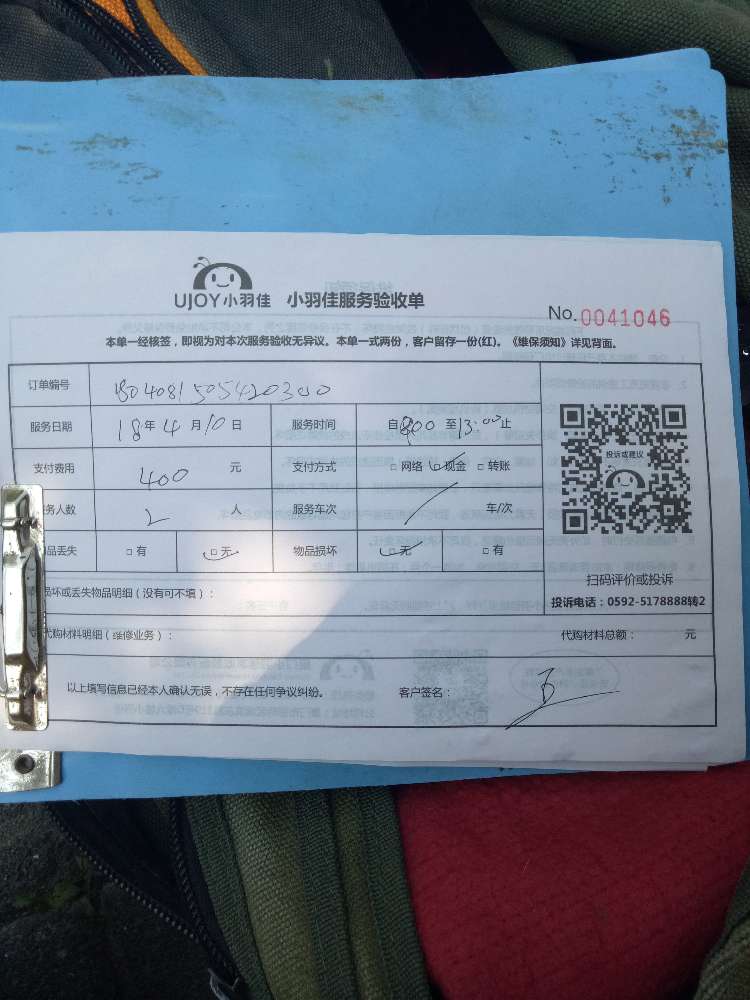 UJOY小羽佳 小羽佳服务验收单
No. 0041046
本单一经核签，即视为对本次服务验收无异议。本单一式两份，客户留存一份(红)。《维保须知》详见背面。
订单编号
服务日期 18年4月10日 服务时间 自 800 至 13:00 止
支付费用 400 元 支付方式 □网络 □现金 □转账
务人数 2 人 服务车次 / 车/次
品丢失 □有 □无 物品损坏 □无 □有
投诉或建议
扫码评价或投诉
投诉电话：0592-5178888转2
损坏或丢失物品明细（没有可不填）：
代购材料明细（维修业务）： 代购材料总额： 元
以上填写信息已经本人确认无误，不存在任何争议纠纷。 客户签名：